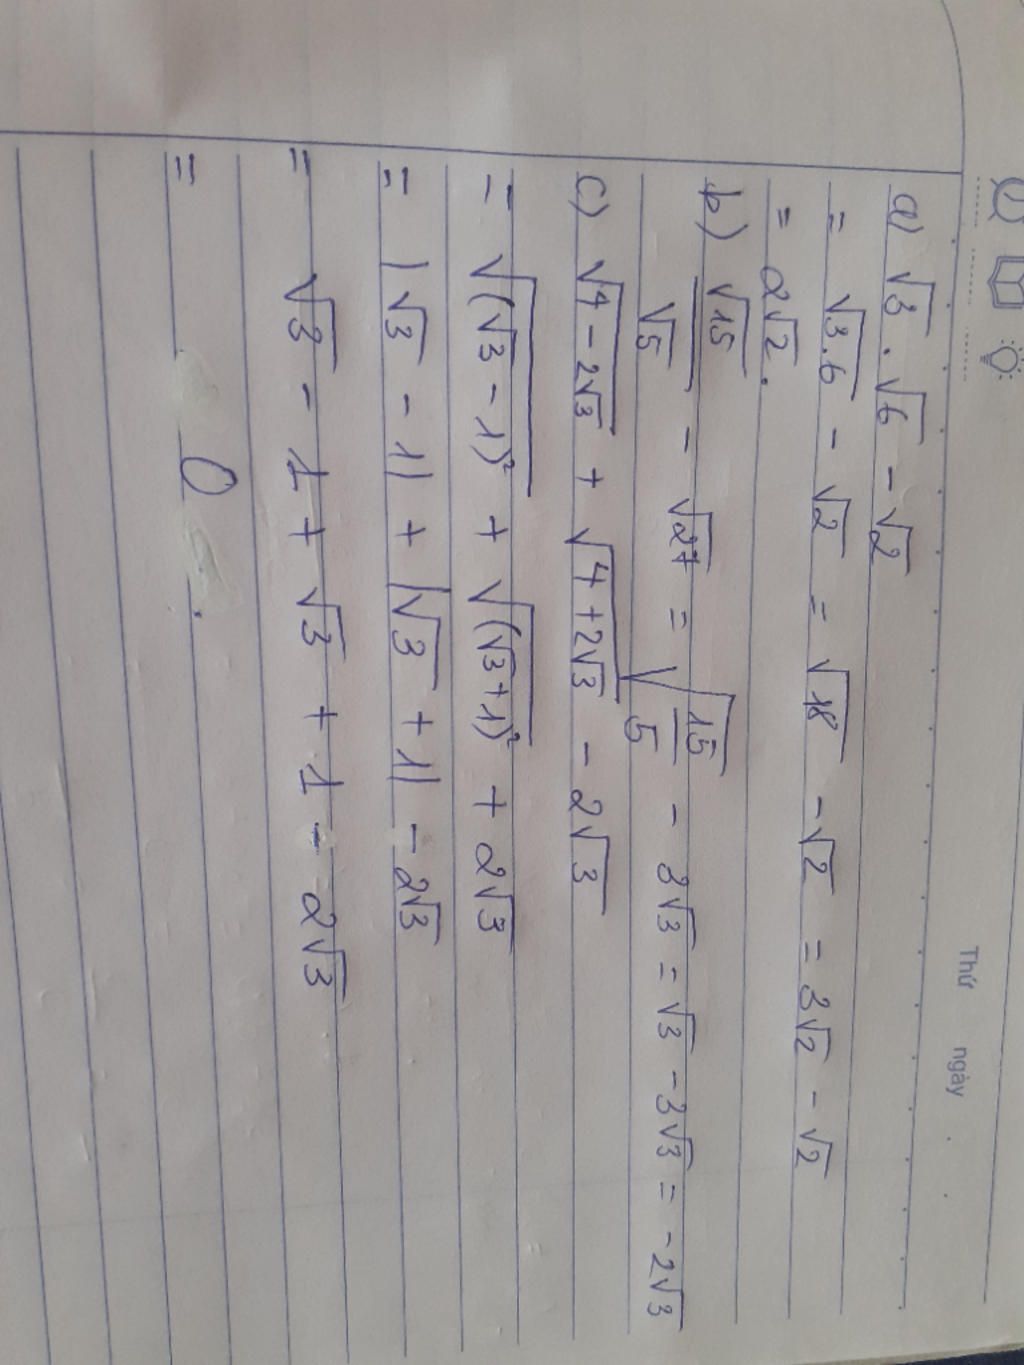 Thứ ngày
a) √3 . √6 - √2
= √3.6 - √2 = √18 - √2 = 3√2 - √2
= 2√2.
b) √15/√5 - √27 = √(15/5) - 3√3 = √3 - 3√3 = -2√3
c) √(4 - 2√3) + √(4 + 2√3) - 2√3
= √((√3 - 1)²) + √((√3 + 1)²) + 2√3
= |√3 - 1| + |√3 + 1| - 2√3
= √3 - 1 + √3 + 1 - 2√3
= 0.